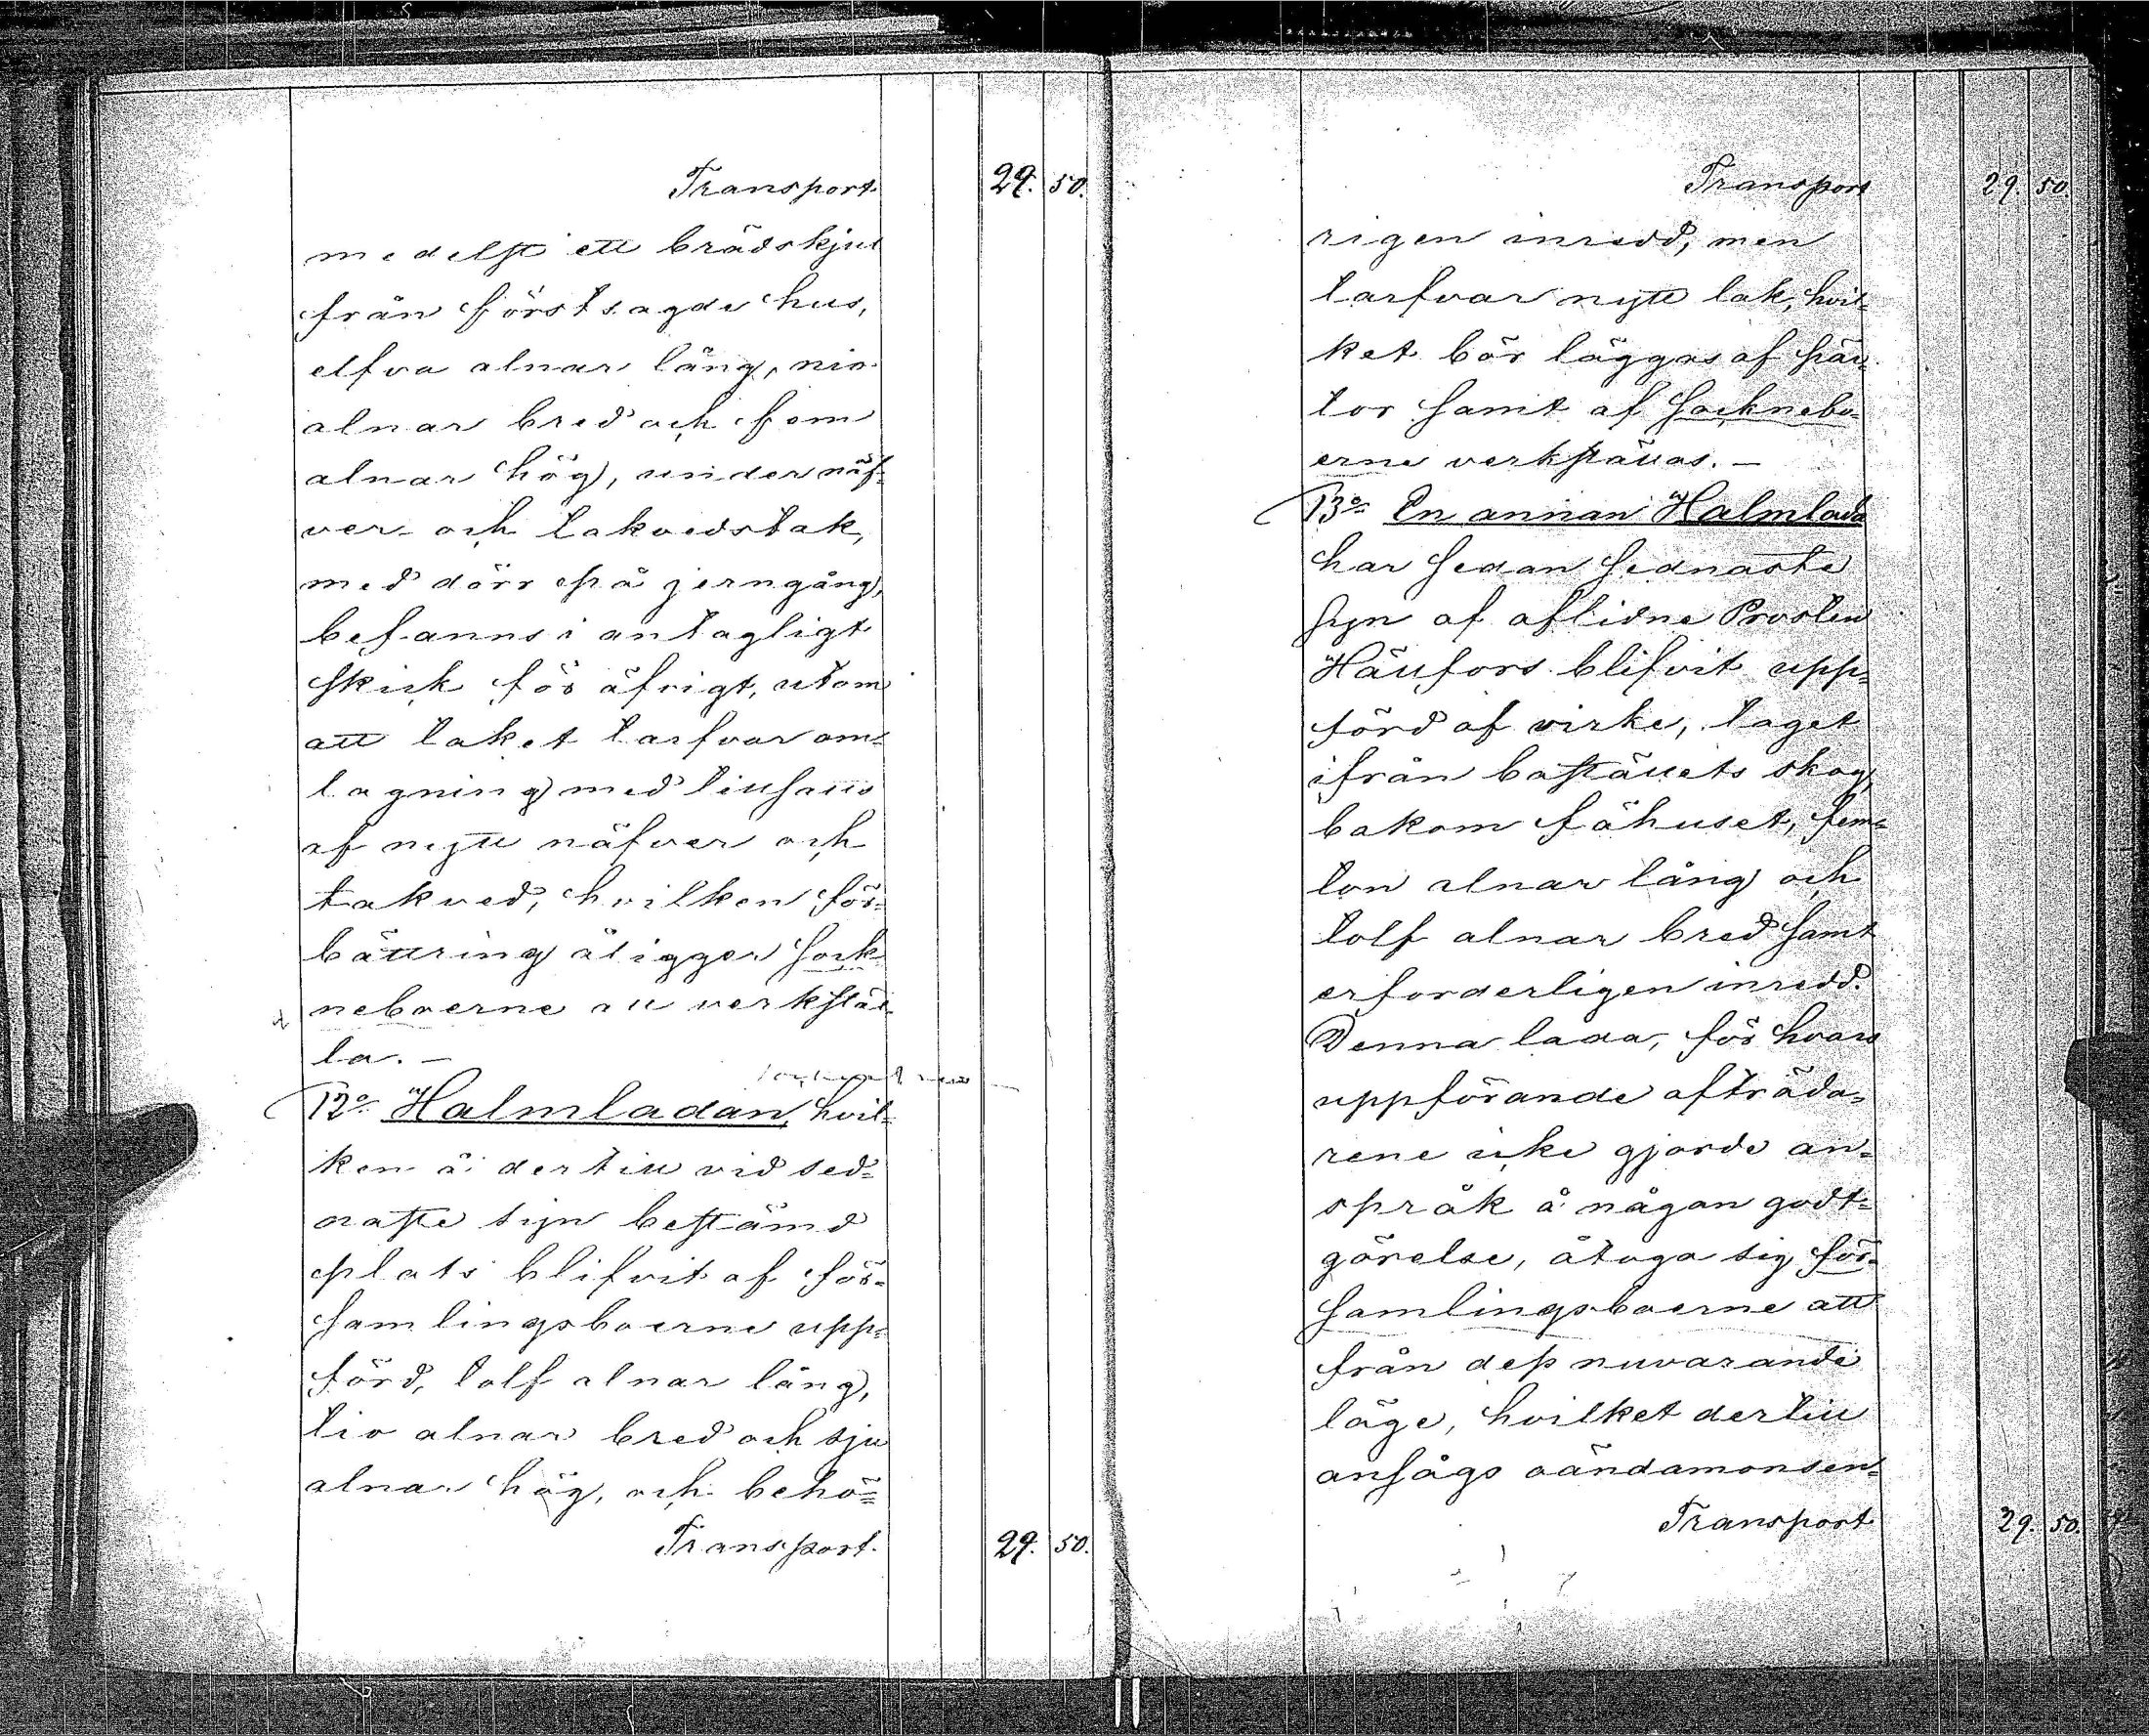 Transport 29. 50.
medelst ett brädskjul
från förstsagde hus,
elfva alnar lång, nio
alnar bred och fem
alnar hög, under näf-
ver- och takvedstak,
med dörr på jerngång,
befanns i antagligt
skick för öfrigt, utom
att taket tarfvar om-
lagning med tillsatts
af nytt näfver och
takved, hvilken för-
bättring åligger Sock
neboerne att verkstäl-
la. —
12:o Halmladan, hvil-
ken å dertill vid sed-
naste syn bestämd
plats blifvit af för-
samlingsboerne upp-
förd, tolf alnar lång,
tio alnar bred och sju
alnar hög, och behö-
Transport. 29. 50.
Transport 29. 50.
rigen inredd, men
tarfvar nytt tak, hvil-
ket bör läggas af pär-
tor samt af Sockenebo-
erne verkställas. —
13:o En annan Halmlada
har sedan sednaste
syn af aflidne Prosten
Hällfors blifvit upp-
förd af virke, taget
ifrån boställets skog,
bakom fähuset, fem-
ton alnar lång och
tolf alnar bred samt
erforderligen inredd.
Denna lada, för hvars
uppförande afträda-
rene icke gjorde an-
språk å någon godt-
görelse, åtogo sig för-
samlingsboerne att
från dess nuvarande
läge, hvilket dertill
ansågs oändamonsen-
Transport 29. 50.